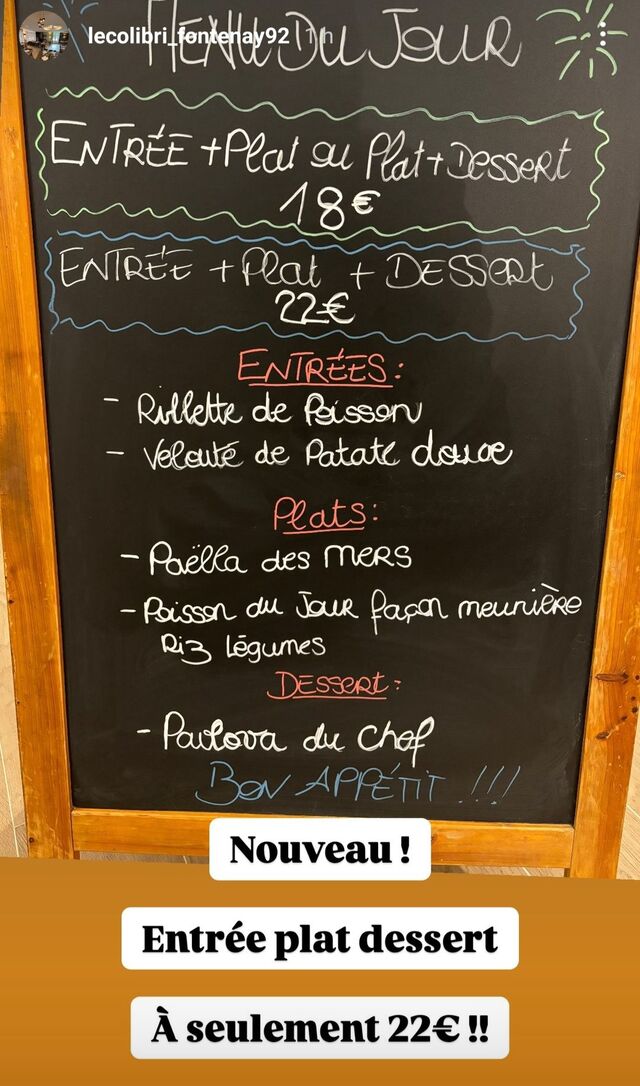 lecolibri_fontenay92 11h
MENU DU JOUR
ENTRÉE + Plat ou Plat + DESSERT
18€
ENTRÉE + Plat + DESSERT
22€
ENTRÉES :
- Rillette de Poisson
- Velouté de Patate douce
Plats :
- Paëlla des MERS
- Poisson du Jour façon meunière
Riz légumes
DESSERT :
- Pavlova du Chef
BON APPÉTIT !!!
Nouveau !
Entrée plat dessert
À seulement 22€ !!